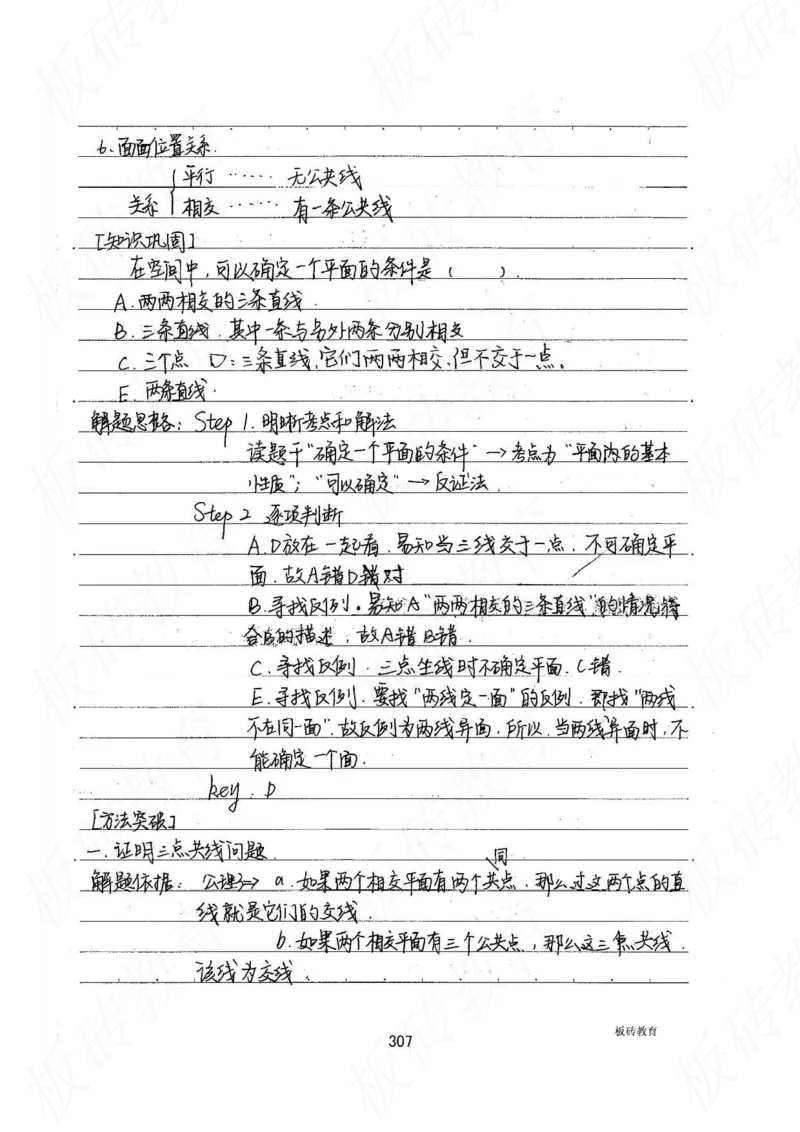 6. 面面位置关系.
关系 { 平行 …… 无公共线
相交 …… 有一条公共线
[知识巩固]
在空间中,可以确定一个平面的条件是( ).
A. 两两相交的三条直线.
B. 三条直线,其中一条与另外两条分别相交
C. 三个点 D: 三条直线,它们两两相交,但不交于一点。
E. 两条直线.
解题思路: Step 1. 明晰考点和解法
读题干"确定一个平面的条件" → 考点为"平面内的基本
性质"; "可以确定" → 反证法.
Step 2 逐项判断
A.D放在一起看.易知当三线交于一点.不可确定平
面.故A错D对
B.寻找反例.易知A"两两相交的三条直线"的情况符
合B的描述,故A错B错.
C.寻找反例.三点共线时不确定平面.C错.
E.寻找反例.要找"两线定一面"的反例.即找"两线
不在同一面".故反例为两线异面.所以.当两线异面时,不
能确定一个面.
key. D
[方法突破]
一.证明三点共线问题.
解题依据: 公理3→ a.如果两个相交平面有两个共同点.那么过这两个点的直
线就是它们的交线.
b.如果两个相交平面有三个公共点,那么这三点共线.
该线为交线.
307
板砖教育